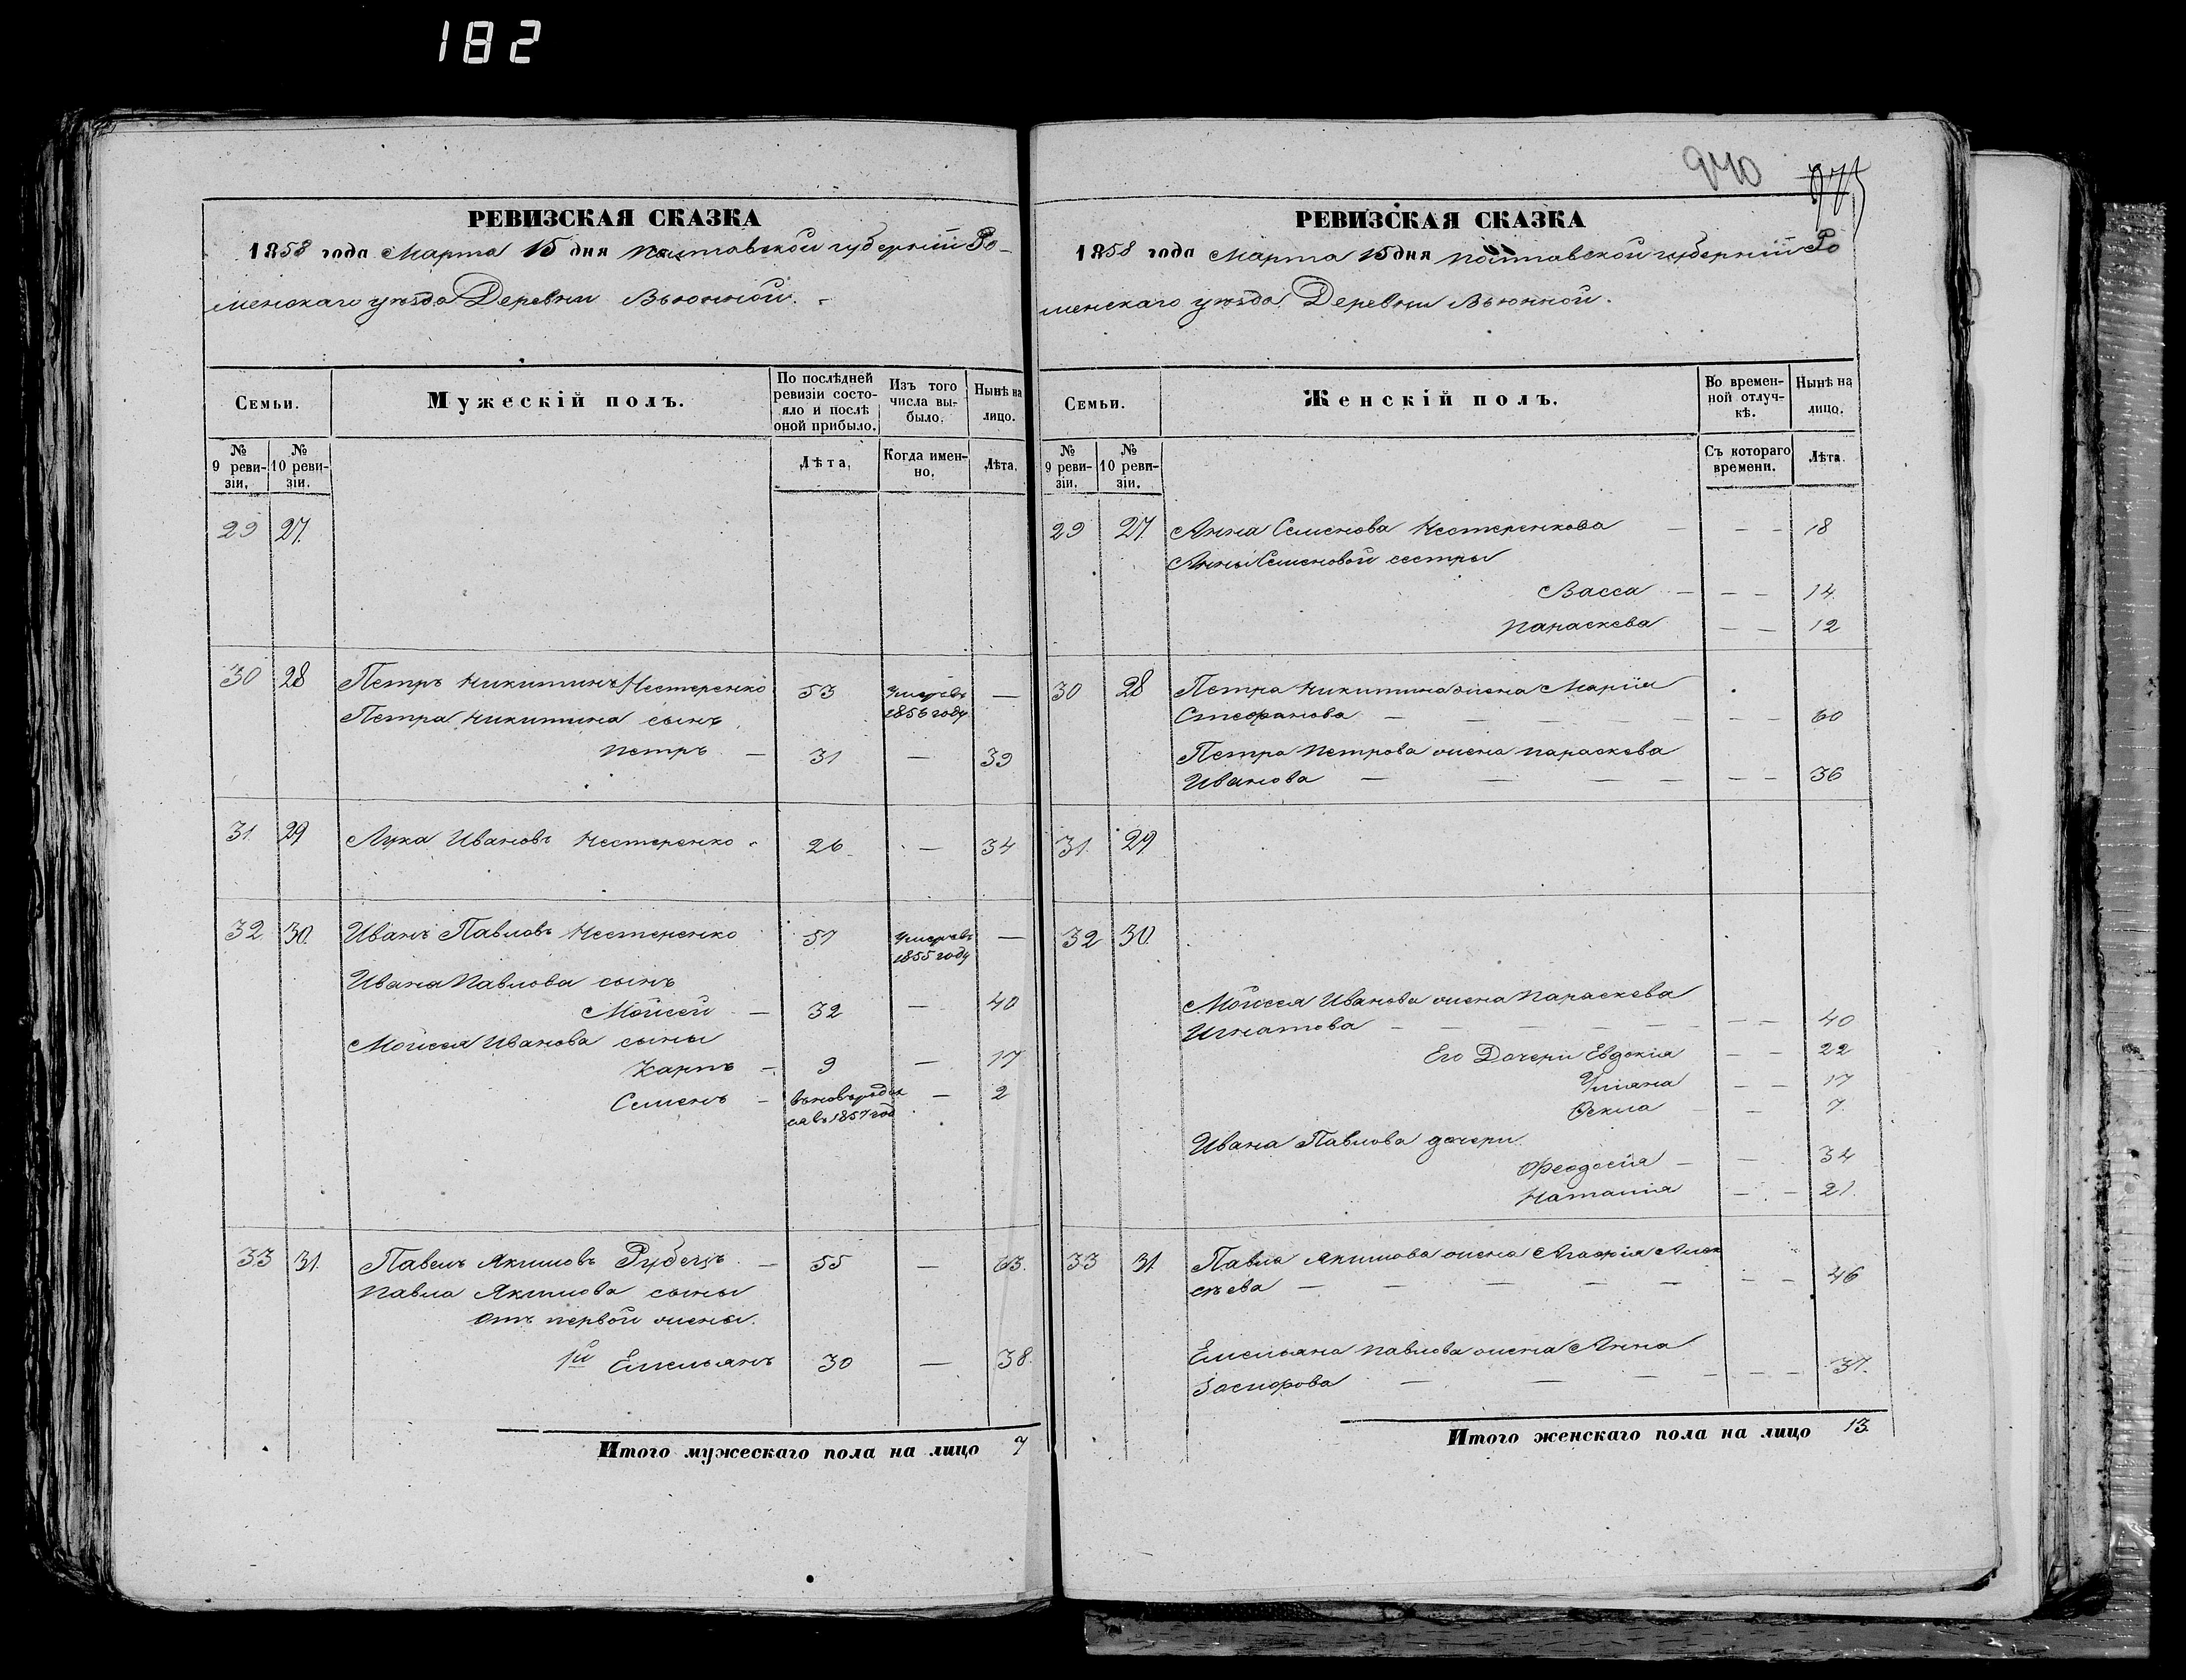 182
РЕВИЗСКАЯ СКАЗКА
1858 года Марта 15 дня Полтавской губерніи Ро-
менскаго уѣзда Деревни Вьюнной.
Семьи.
Мужескій полъ.
По послѣдней ревизіи состояло и послѣ оной прибыло.
Изъ того числа выбыло.
Нынѣ на лицо.
№ 9 ревизіи.
№ 10 ревизіи.
Лѣта.
Когда именно.
Лѣта.
29 27.
30 28 Петръ Никитинъ Нестеренко 53 Умеръ въ —
1856 году
Петра Никитина сынъ
Петръ — 31 — 39
31. 29 Лука Ивановъ Нестеренко 26 — 34
32 30. Иванъ Павловъ Нестеренко 57 Умеръ въ —
1855 году
Ивана Павлова сынъ
Мойсей — 32 — 40
Мойсея Иванова сыны
Карпъ — 9 — 17
Семенъ — вновь родил — 2
ся въ 1857 год
33 31. Павелъ Якимовъ Рубецъ — 55 — 63.
Павла Якимова сыны
отъ первой жены.
1й Емельянъ 30 — 38.
Итого мужескаго пола на лицо 7
940
975
РЕВИЗСКАЯ СКАЗКА
1858 года Марта 15 дня Полтавской губерніи Ро
менскаго уѣзда Деревни Вьюнной.
Семьи.
Женскій полъ.
Во временной отлучкѣ.
Нынѣ на лицо.
№ 9 ревизіи.
№ 10 ревизіи.
Съ котораго времени.
Лѣта.
29 27. Анна Семенова Нестеренкова — — — 18
Анны Семеновой сестры
Васса — — — 14.
Параскева — — 12
30 28 Петра Никитина жена Марія
Стефанова — — — — — — — 60
Петра Петрова жена Параскева
Иванова — — — — — — 36
31. 29
32 30.
Мойсея Иванова жена Параскева
Игнатова — — — — — — — — 40
Его Дочери Евдокія — — 22
Уліяна — — 17
Фекла — — 7.
Ивана Павлова дочери.
Феодосія — — 34
Наталія — — 21.
33 31 Павла Якимова жена Агафія Алек
сѣева — — — — — — — 46
Емельяна Павлова жена Анна
— — — — — — — 37.
Итого женскаго пола на лицо 13.